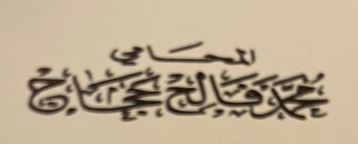 المحامي
محمد فالح عجاج